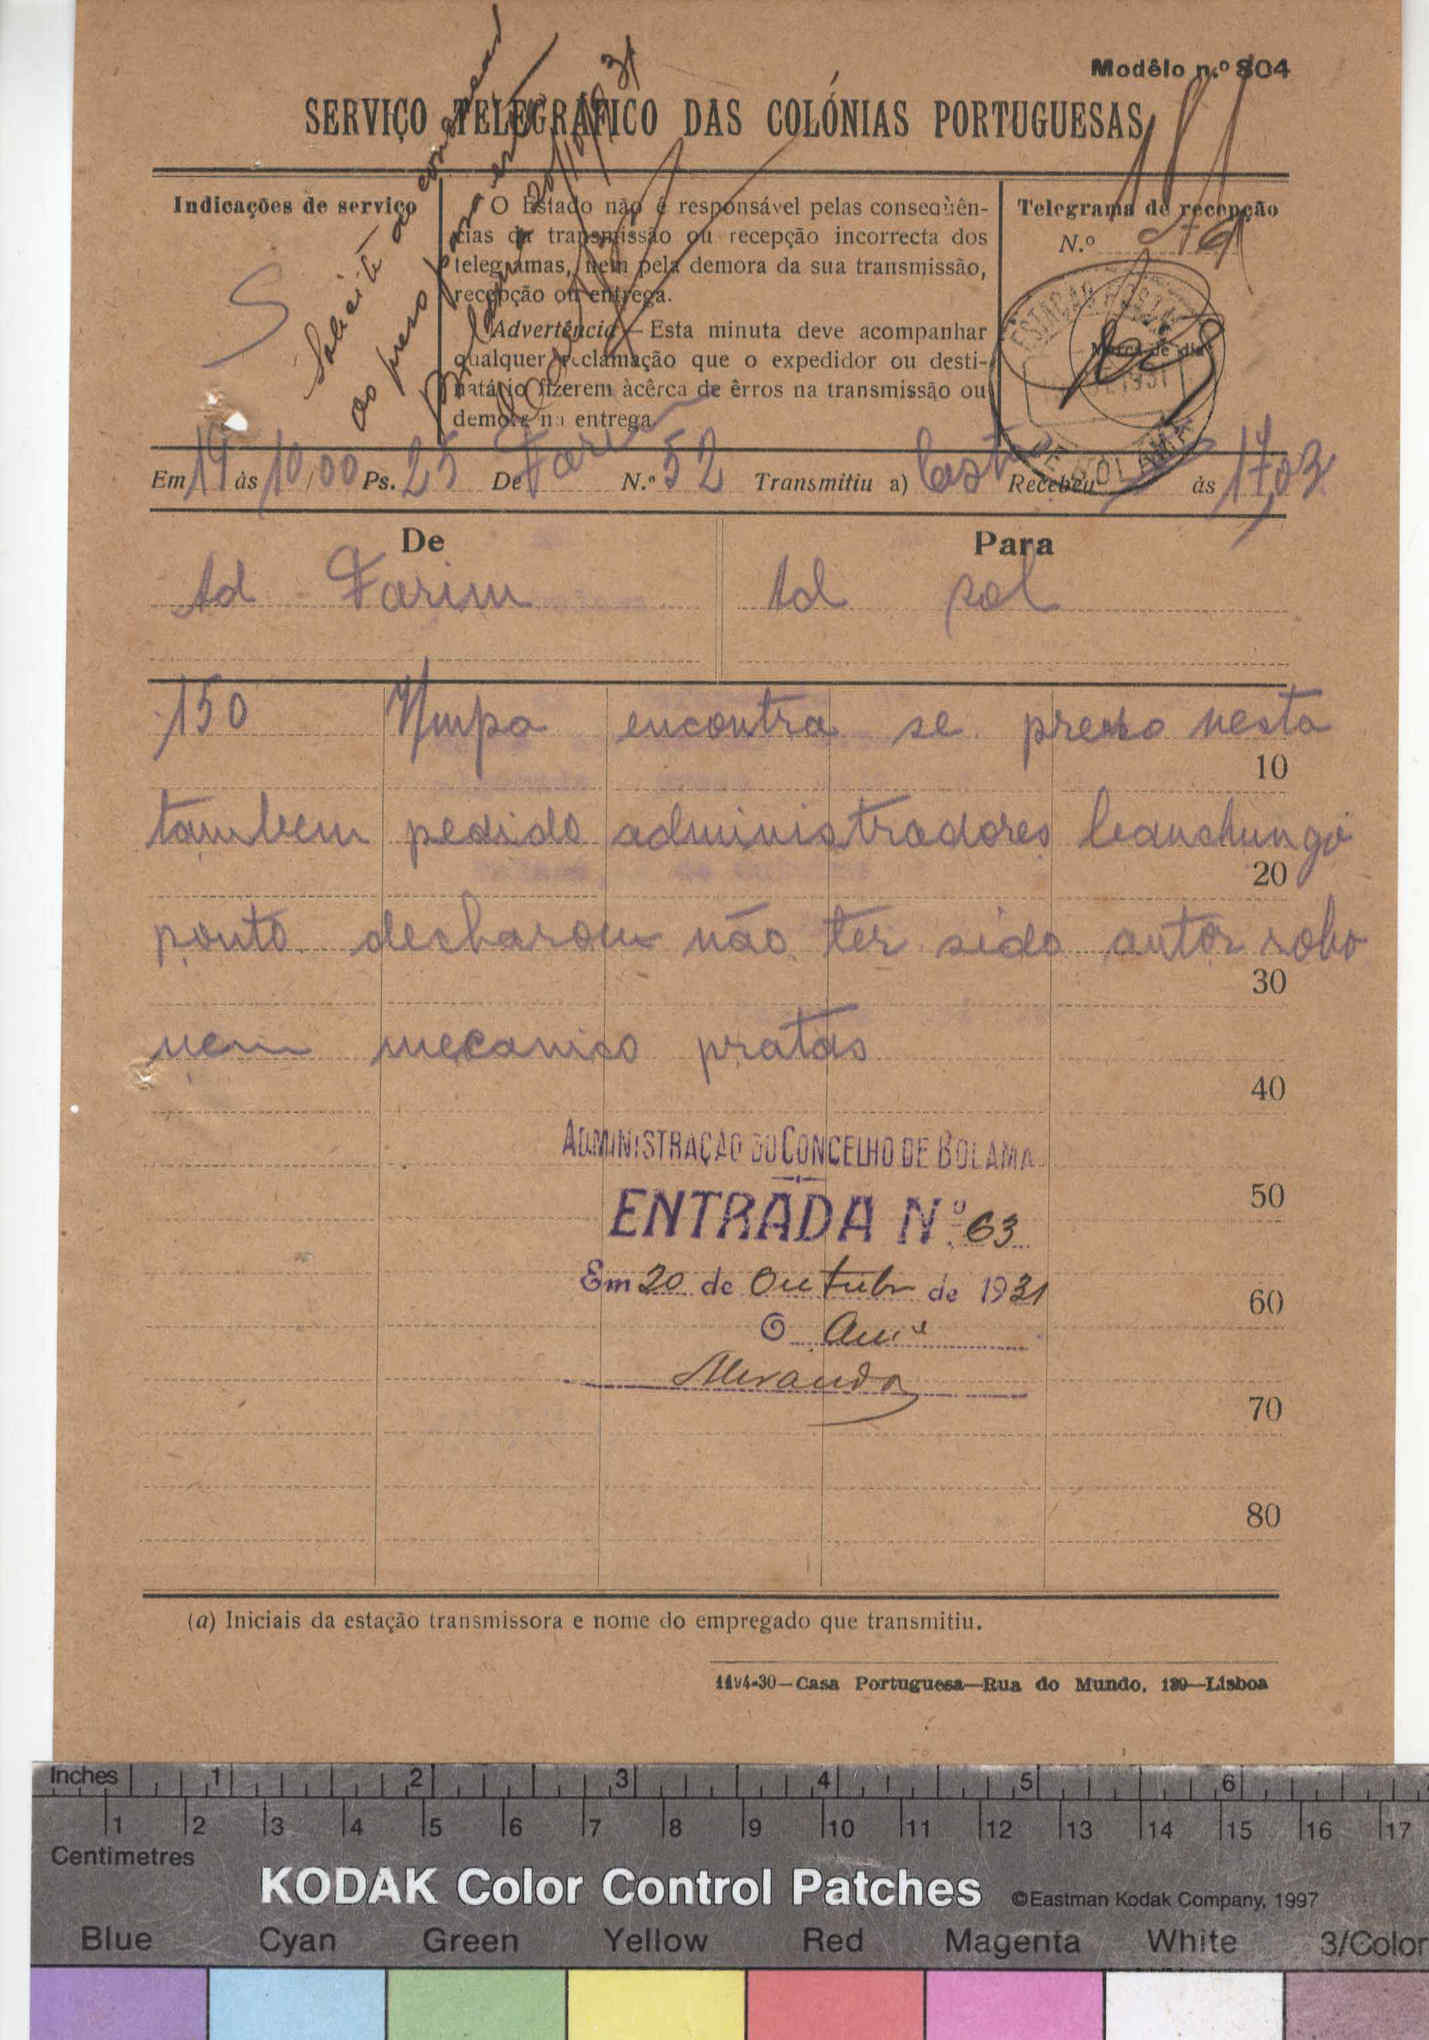 Modêlo n.º 804
SERVIÇO TELEGRÁFICO DAS COLÓNIAS PORTUGUESAS
Indicações de serviço
O Estado não é responsável pelas conseqùên-
cias da transmissão ou recepção incorrecta dos
telegramas, nem pela demora da sua transmissão,
recepção ou entrega.
Advertência—Esta minuta deve acompanhar
qualquer reclamação que o expedidor ou desti-
natário fizerem àcêrca de êrros na transmissão ou
demora na entrega.
Telegrama de recepção
N.º
Marca de dia
Solicite
ao preso
20/10/931
ESTAÇÃO
1931
DE BOLAMA
Em 19 às 10/00 Ps. 25 De Farim N.º 52 Transmitiu a) Recebeu às 17,03
De
Para
Ad Farim
Ad Bol
150 encontra se preso nesta
10
tambem pedido administradores Canchungo
20
ponto declarou não ter sido autor robo
30
nem mecanico pratas
40
ADMINISTRAÇÃO DO CONCELHO DE BOLAMA
ENTRADA Nº 63
50
Em 20 de Outubr de 1931
60
O
Miranda
70
80
(a) Iniciais da estação transmissora e nome do empregado que transmitiu.
Casa Portuguesa—Rua do Mundo, 139—Lisboa
Inches 1 2 3 4 5 6
1 2 3 4 5 6 7 8 9 10 11 12 13 14 15 16 17
Centimetres
KODAK Color Control Patches ©Eastman Kodak Company, 1997
Blue Cyan Green Yellow Red Magenta White 3/Color